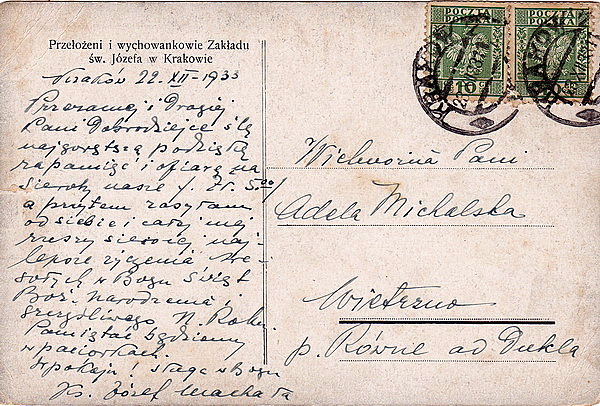 Przełożeni i wychowankowie Zakładu
św. Józefa w Krakowie
Kraków 22 XII – 1933
Przezacnej i Drogiej
Pani Dobrodziejce ślę
najgorętszą podziękę
za pamięć i ofiarę na
sieroty nasze /. Zł. 5.00/
a przytem zasyłam
od siebie i całej mej
rzeszy sierocej naj-
lepsze życzenia We-
sołych w Bogu Świąt
Boż. Narodzenia i
szczęśliwego N. Roku.
Pamiętać będziemy
w paciorkach.
sługa w Bogu
Ks. Józef Machała
POCZTA
POLSKA
10
POCZTA
POLSKA
Wielmożna Pani
Adela Michalska
Wietrzno
p. Równe ad Dukla